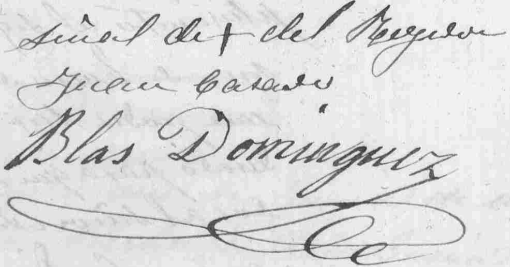 señal de + del Regidor
Juan Casado
Blas Dominguez